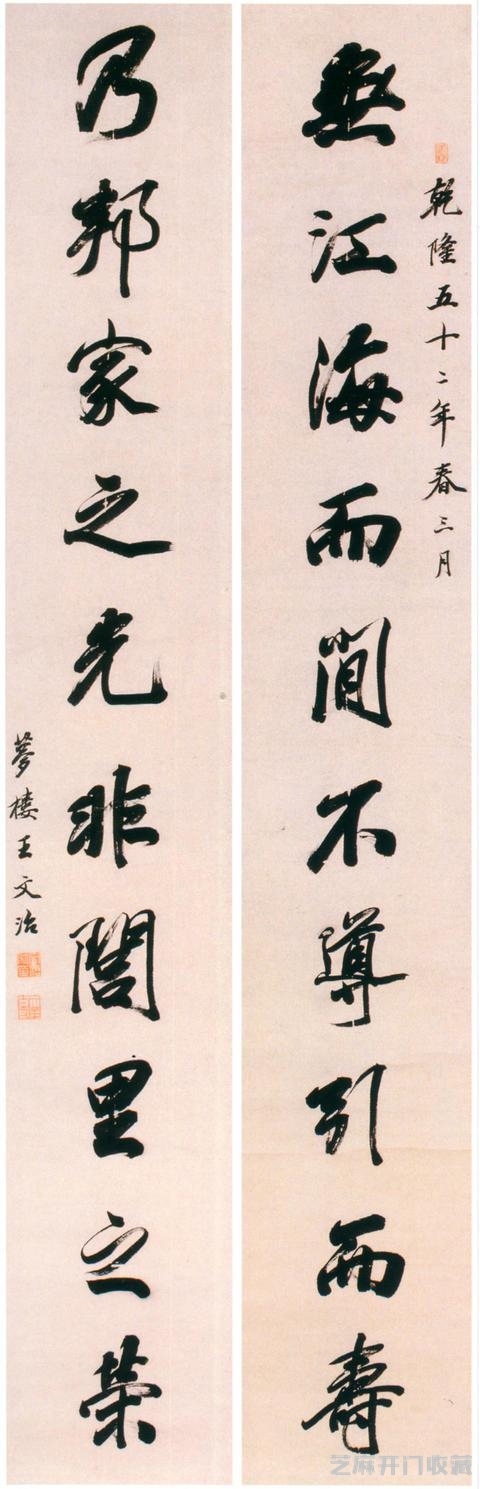 乾隆五十二年春三月
無江海而閒不導引而壽
乃邦家之光非閭里之榮
夢樓王文治
芝麻开门收藏